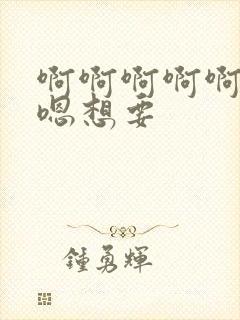 啊啊啊啊啊
嗯想要
鍾勇輝